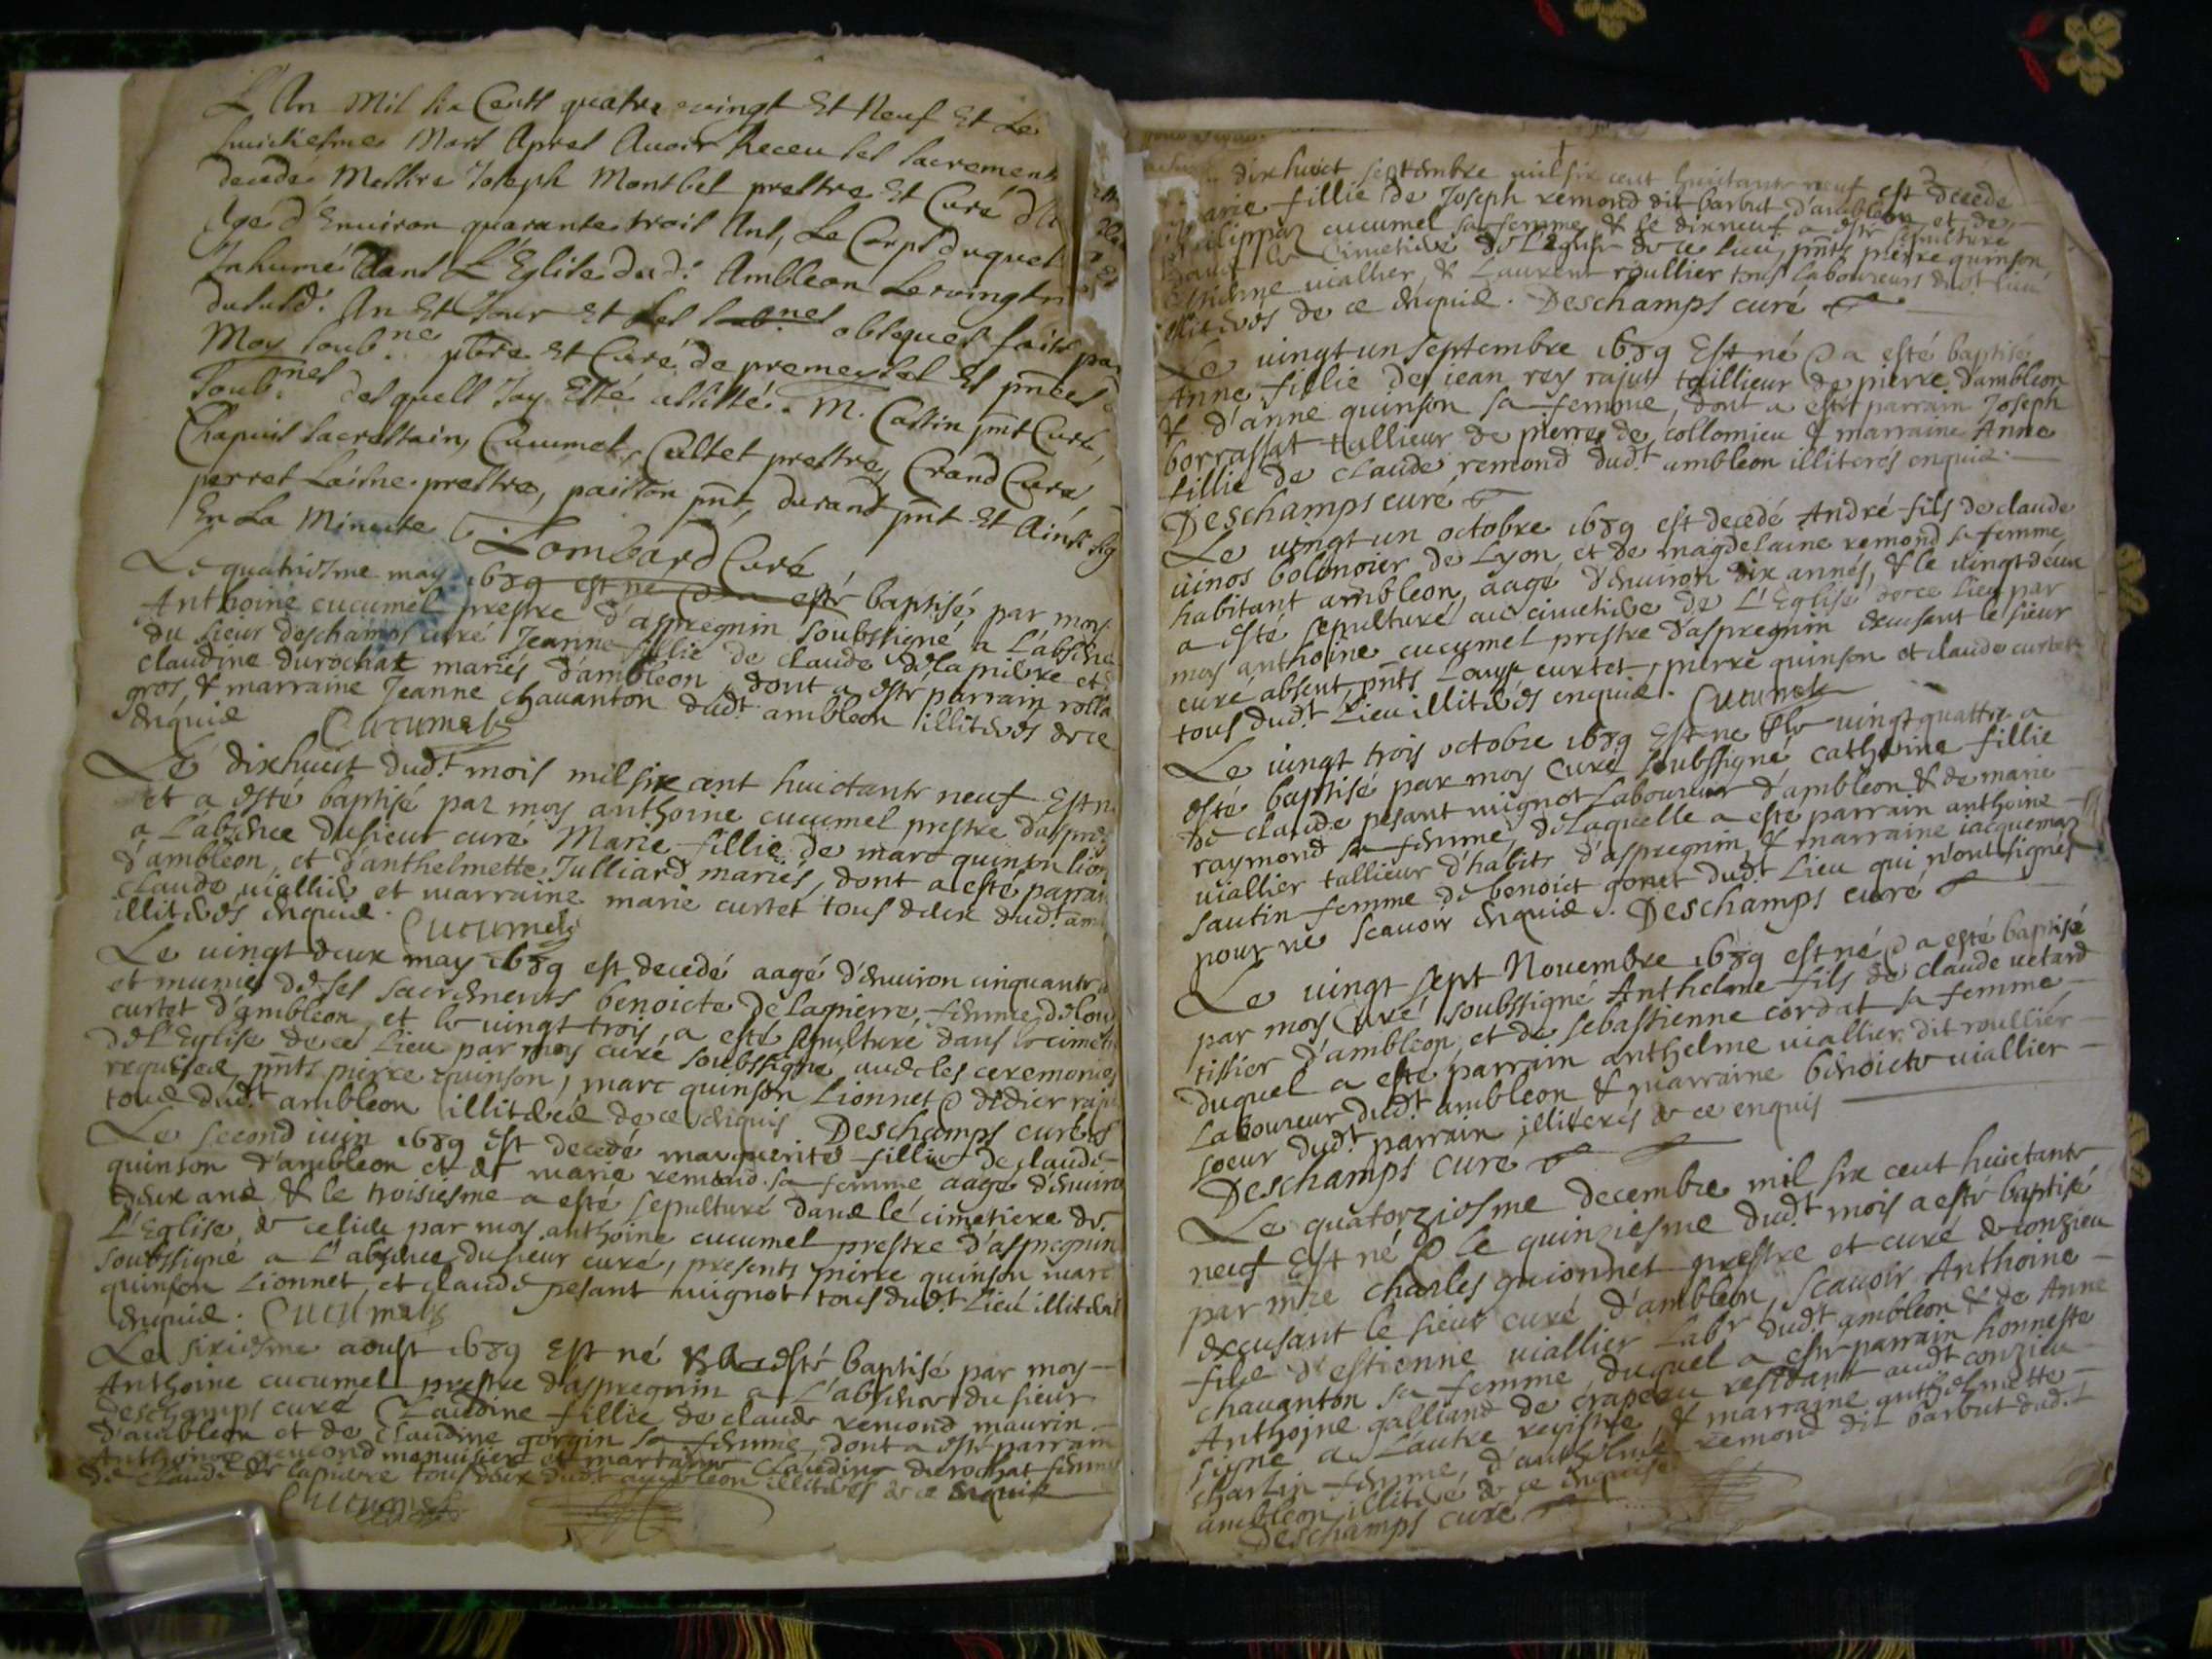 L'An Mil six Cents quatre vingt Et Neuf Et Le
huictiesme Mars Apres Auoir Receu les sacrements
decedé Messire Joseph Montbel prestre Et Curé d'A
Agé d'Enuiron quarante trois Ans, Le Corps duquel
Inhumé Dans L'Eglise dud.t Ambleon Le vingt
dususd.t An Et Jour et Les soub.nes obseques faits par
Moy soub.ne pbre Et Curé de premeysel Et pntes
soub.nes desquels Jay Esté assisté. M. Cassin pnt Curé,
Chapuis sacrestain, Cucumel, Caltet prestre, Crand Curé,
perret L'aisne prestre, paisson pnt, durand pnt Et Ainsi sig
En La Minute Lombard Curé
Le quatriesme may 1689 est né & a esté baptisé par moy
Anthoine cucumel prestre d'aspregnin soubssigné a L'absence
du sieur deschamps curé Jeanne fillie de claude delapierre et
claudine durochat mariés d'ambleon, dont a esté parrain rolla
gros, & marraine Jeanne chauanton dud.t ambleon illiteres de ce
enquis Cucumel
Le dixhuict dud.t mois mil six cent huictante neuf Est n
et a esté baptisé par moy anthoine cucumel prestre d'aspre
a L'absence dusieur curé Marie fillie de marc quinson lion
d'ambleon, et d'anthelmette Julliard mariés, dont a esté parrai
claude viallier et marraine marie curtet tous deux dud.t am
illiteres enquis. Cucumel
Le vingt deux may 1689 est decedé aagé d'enuiron cinquante
et munie de ses sacrements benoicte delapierre, femme de lou
curtet d'ambleon, et le vingt trois, a esté sepulturé dans le cimeti
de l'Eglise de ce Lieu par moy curé soubssigné, auec les ceremonies
requises, pnts pierre quinson, marc quinson Lionnet & didier raju
tous dud.t ambleon illiteres de ce enquis Deschamps curé
Le second iuin 1689 est decedé marguerite fillie de claude
quinson d'ambleon et de marie remond sa femme aagé d'enuiro
deux ans & le troisiesme a esté sepulturé dans le cimetiere de
L'Eglise de ce lieu par moy anthoine cucumel prestre d'aspregnin
soubssigné a L'absence du sieur curé, presents pierre quinson marc
quinson Lionnet, et claude pesant mignot tous dud.t Lieu illiteres
enquis. Cucumel
Le sixiesme aoust 1689 Est né & a esté baptisé par moy
Anthoine cucumel prestre d'aspregnin a L'absence du sieur
deschamps curé Claudine fillie de claude remond maurin
d'ambleon et de claudine gorgin sa femme, dont a esté parrain
Anthoine remond menuisier et marraine claudine durochat femme
de claude de lapierre tous deux dud.t ambleon illiteres de ce enquis
Cucumel
dixhuict septembre mil six cent huictante neuf est decedé
marie fillie de Joseph remond dit barbut d'ambleon et de
philippaz cucumel sa femme & le dixneuf a esté sepulturé
dans le Cimetiere de L'eglise de ce lieu, pnts pierre quinson
estienne viallier, & Laurent roullier tous laboureurs dud.t lieu
illiteres de ce enquis. Deschamps curé
Le vingt un septembre 1689 Est né & a esté baptisé
Anne fillie de iean rey rajut taillieur de pierre d'ambleon
& d'anne quinson sa femme, dont a esté parrain Joseph
borrassat tallieur de pierre de collomieu & marraine Anne
fillie de claude remond dud.t ambleon illiteres enquis.
Deschamps curé
Le vingt un octobre 1689 est decedé André fils de claude
vinos bolonoier de Lyon et de magdelaine remond sa femme
habitant ambleon, aagé d'enuiron dix annés, & le vingt deux
a esté sepulturé au cimetiere de L'Eglise de ce lieu par
moy anthoine cucumel prestre d'aspregnin excusant le sieur
curé absent, pnts Louys curtet, pierre quinson et claude curtet
tous dud.t Lieu illiteres enquis. Cucumel
Le vingt trois octobre 1689 Est né & le vingt quattre a
esté baptisé par moy Curé soubssigné catherine fillie
de claude pesant mignot Laboureur d'ambleon & de marie
raymond sa femme, de Laquelle a esté parrain anthoine
viallier tallieur d'habits d'aspregnin, & marraine iacquemaz
sautin femme de benoict gonet dud.t Lieu qui n'ont signés
pour ne scauoir enquis. Deschamps curé
Le vingt sept Nouembre 1689 est né & a esté baptisé
par moy Curé soubssigné Anthelme fils de claude uetard
tissier d'ambleon, et de sebastienne cordat sa femme
duquel a esté parrain anthelme viallier dit roullier
Laboureur dud.t ambleon & marraine benoicte viallier
soeur dud.t parrain illiterés de ce enquis
Deschamps curé
Le quatorziesme decembre mil six cent huictante
neuf Est né & le quinziesme dud.t mois a esté baptisé
par mre charles guionnet prestre et curé de conzieu
excusant le sieur curé d'ambleon, scauoir Anthoine
fils d'estienne viallier Lab.r dud.t ambleon & de Anne
chauanton sa femme, duquel a esté parrain honneste
Anthoine galliand de crapeau residant aud.t conzieu
signé a L'autre registre, & marraine anthelmette
charlin femme, d'anthelme remond dit barbut dud.t
ambleon illitere de ce enquise
deschamps curé